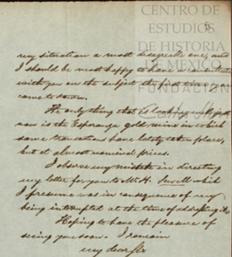 CENTRO DE
ESTUDIOS
DE HISTORIA
DE MEXICO
my situation a most disagreeable one, and
I should be most happy to have a
with you on the subject
came to town.
The only thing that
now is the Esperanza gold mine in which
some transactions have lately taken place,
but at almost nominal prices.
I observe my mistake in directing
my letter for you to which
I presume was in consequence of my
being interrupted at the time of addressing it.
Hoping to have the pleasure of
seeing you soon. I remain
my dear Sir